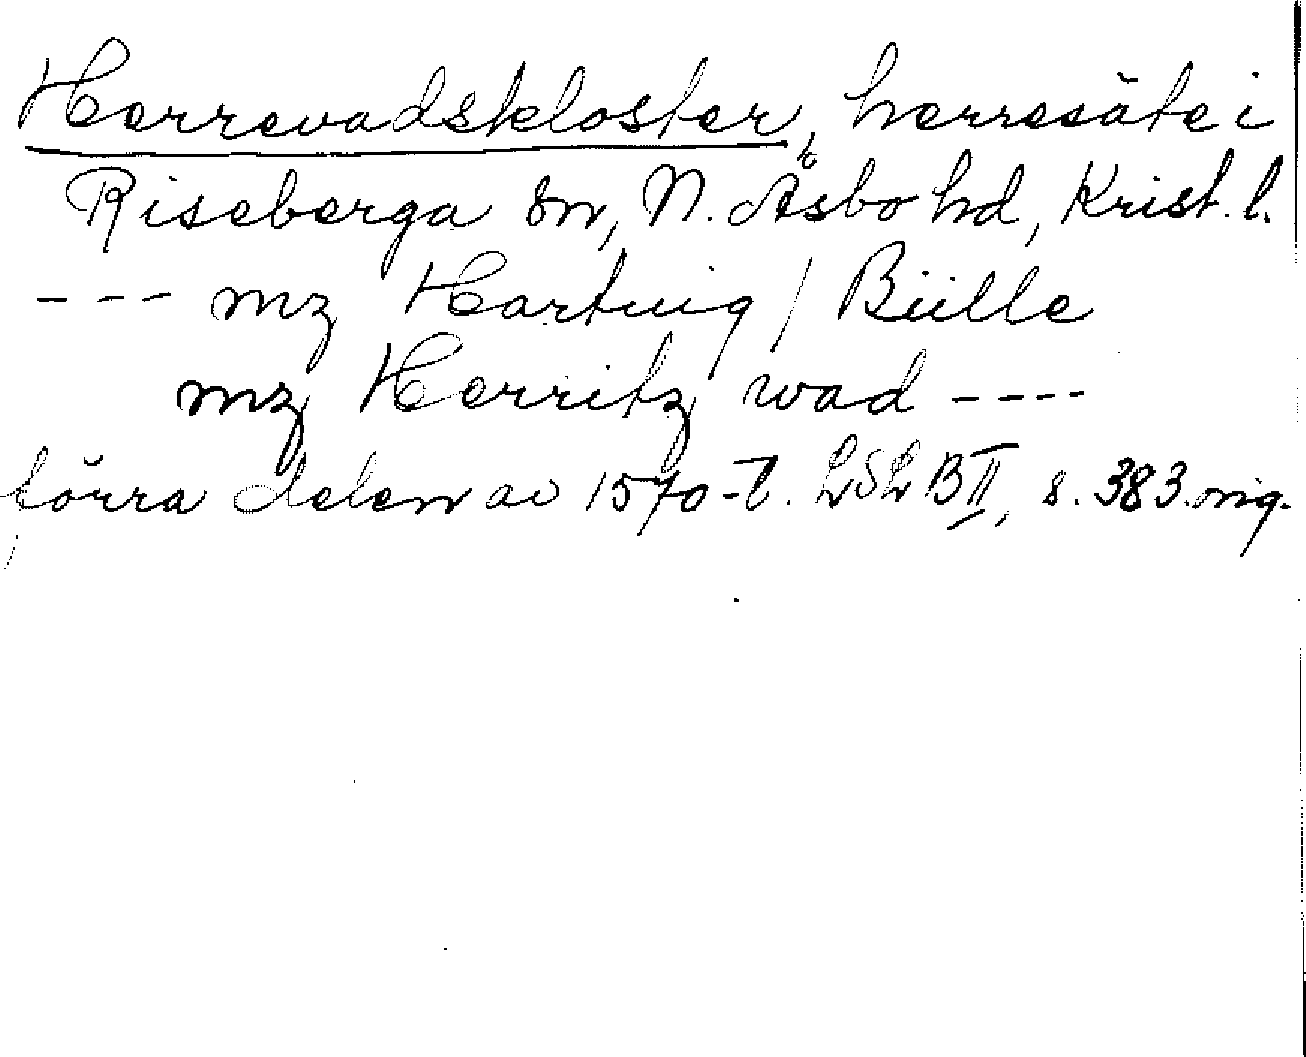 Herrevadskloster, herresäte i
Riseberga sn, N. Åsbo hd, Krist. l.
--- mz Hartuig / Bülle
mz Herritz wad ----
förra delen av 1570-t. LSL B II, s. 383. orig.